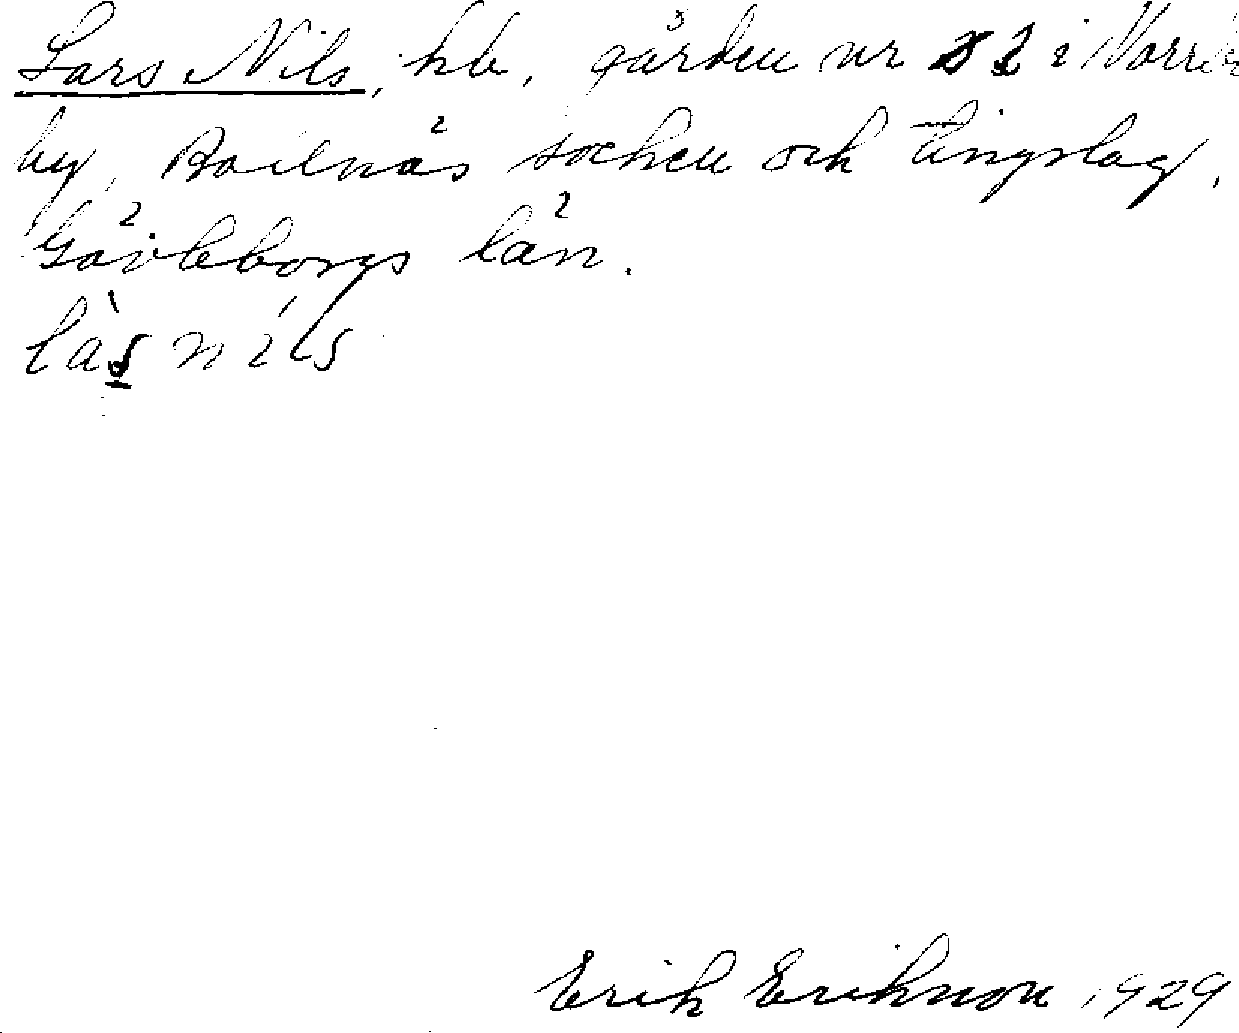 Lars Nils, hb, gården nr 2 i Norrby
by, Bollnäs socken och tingslag,
Gävleborgs län.
làs níls
Erik Eriksson 1929